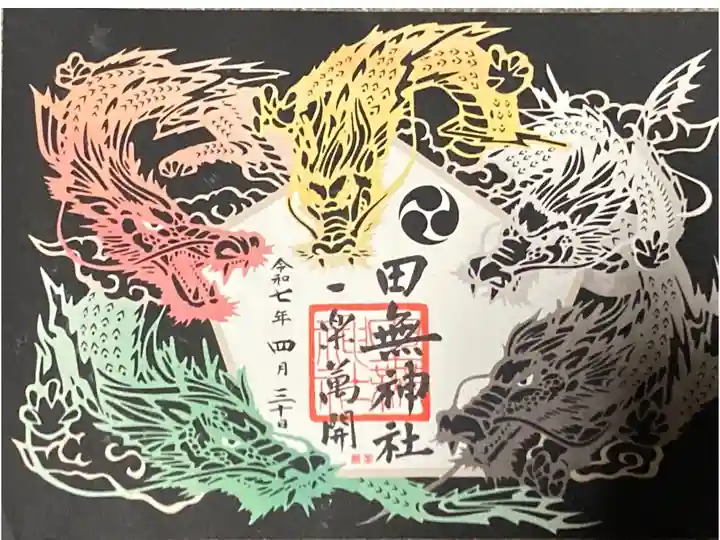 田無神社
一楽萬開
令和七年四月三十日